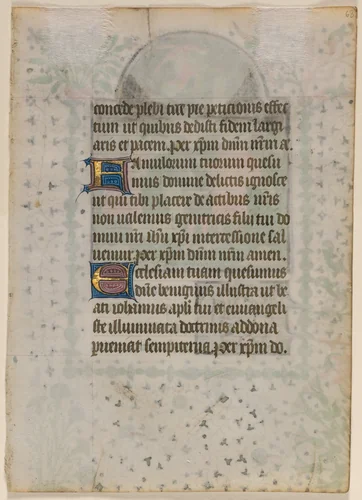 concede plebi tue pie peticionis effec
tum ut quibus dedisti fidem largi
aris et pacem. Per xpm dnm nrm ac.
Famulorum tuorum quesu
mus domine delictis ignosce
ut qui tibi placere de actibus nris
non ualemus genitricis filij tui do
mini nri ihu xpi intercessione sal
uemur. Per xpm dnm nrm amen.
Ecclesiam tuam quesumus
dne benignus illustra ut be
ati iohannis apli tui et euuangeli
ste illuminata doctrinis ad dona
perueniat sempiterna. Per xpm do.